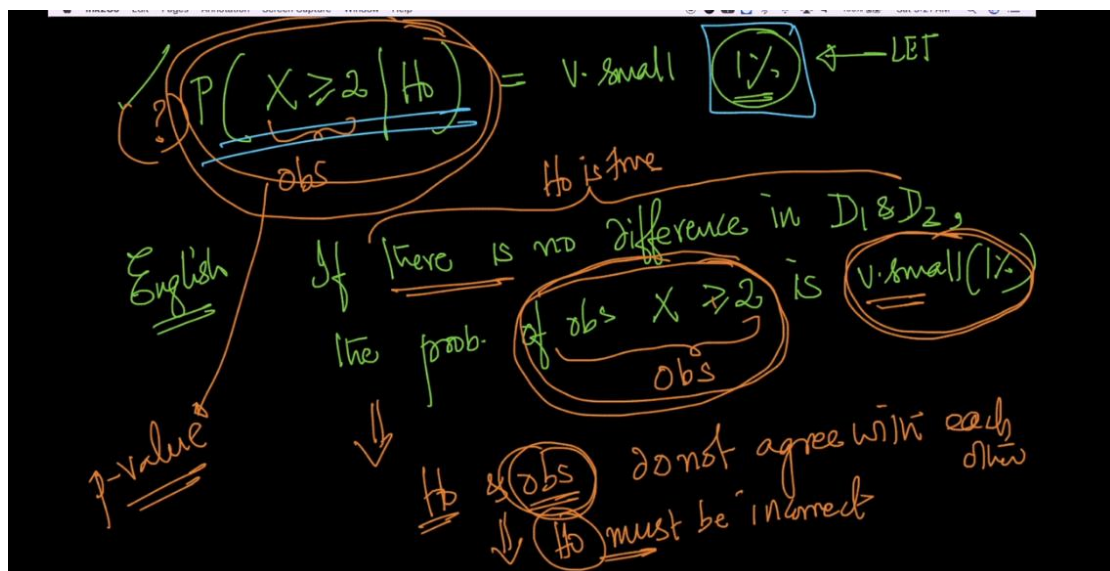 P( X ≥ 2 | Ho ) = v. small 1% ← LET
?
obs
Ho is true
English If there is no difference in D1 & D2,
the prob. of obs X ≥ 2 is v. small (1%)
obs
p-value
⇓ Ho & obs do not agree with each other
⇓ Ho must be incorrect